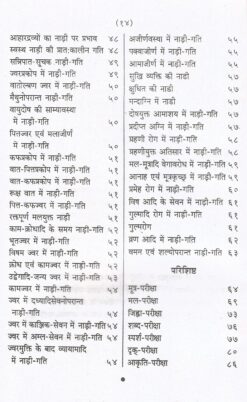 ( १४ )
आहारद्रव्यों का नाड़ी पर प्रभाव ४८
स्वस्थ नाड़ी की प्रातःकालीन गति ४८
सन्निपात-सूचक नाड़ी-गति ४९
ज्वरप्रकोप में नाड़ी-गति ४९
वातोल्बण ज्वर में नाड़ी-गति ५०
मैथुनोपरान्त नाड़ी-गति ५०
वायुदोष की साम्यावस्था
में नाड़ी-गति ५०
पित्तज्वर एवं मलाजीर्ण
में नाड़ी-गति ५०
कफप्रकोप में नाड़ी-गति ५१
वात-पित्तप्रकोप में नाड़ी-गति ५१
वात-कफप्रकोप में नाड़ी-गति ५१
रूक्ष वात में नाड़ी-गति ५१
पित्त-कफज्वर में नाड़ी-गति ५१
रक्तपूर्ण मलयुक्त नाड़ी ५१
काम-क्रोधादि के समय नाड़ी-गति ५२
भूतज्वर में नाड़ी-गति ५२
विषम ज्वर में नाड़ी-गति ५२
क्रोध एवं कामज्वर में नाड़ी-गति ५२
उद्वेगादि-जन्य ज्वर में नाड़ी-गति ५३
कामज्वर में नाड़ी-गति ५४
ज्वर में दध्यादिसेवनोपरान्त
नाड़ी-गति ५४
ज्वर में काञ्जिक-सेवन में नाड़ी-गति ५४
ज्वर में अम्ल-सेवन में नाड़ी-गति ५४
ज्वरमुक्ति के बाद व्यायामादि
में नाड़ी-गति ५४
अजीर्णावस्था में नाड़ी-गति ५५
पक्वाजीर्ण में नाड़ी-गति ५५
आमाजीर्ण में नाड़ी-गति ५५
सुखि व्यक्ति की नाडी ५७
क्षुधित की नाडी ५७
मन्दाग्नि में नाडी ५७
दोषयुक्त आमाशय में नाड़ी-गति ५७
प्रदीप्त अग्नि में नाड़ी-गति ५७
ग्रहणी रोग में नाड़ी-गति ५८
ग्रहणीयुक्त अतिसार में नाड़ी-गति ५८
मल-मूत्रादि वेगावरोध में नाड़ी-गति ५९
आनाह एवं मूत्रकृच्छ्र में नाड़ी-गति ५९
प्रमेह रोग में नाड़ी-गति ६०
विष आदि के सेवन में नाड़ी-गति ६१
गुल्मादि रोग में नाड़ी-गति ६१
गुल्मरोग ६१
व्रण आदि में नाड़ी-गति ६२
वमन एवं शल्योपरान्त नाड़ी-गति ६३
परिशिष्ट
मूत्र-परीक्षा ६४
मल-परीक्षा ६९
जिह्वा-परीक्षा ७३
शब्द-परीक्षा ७६
स्पर्श-परीक्षा ७७
दृक्-परीक्षा ८०
आकृति-परीक्षा ८६